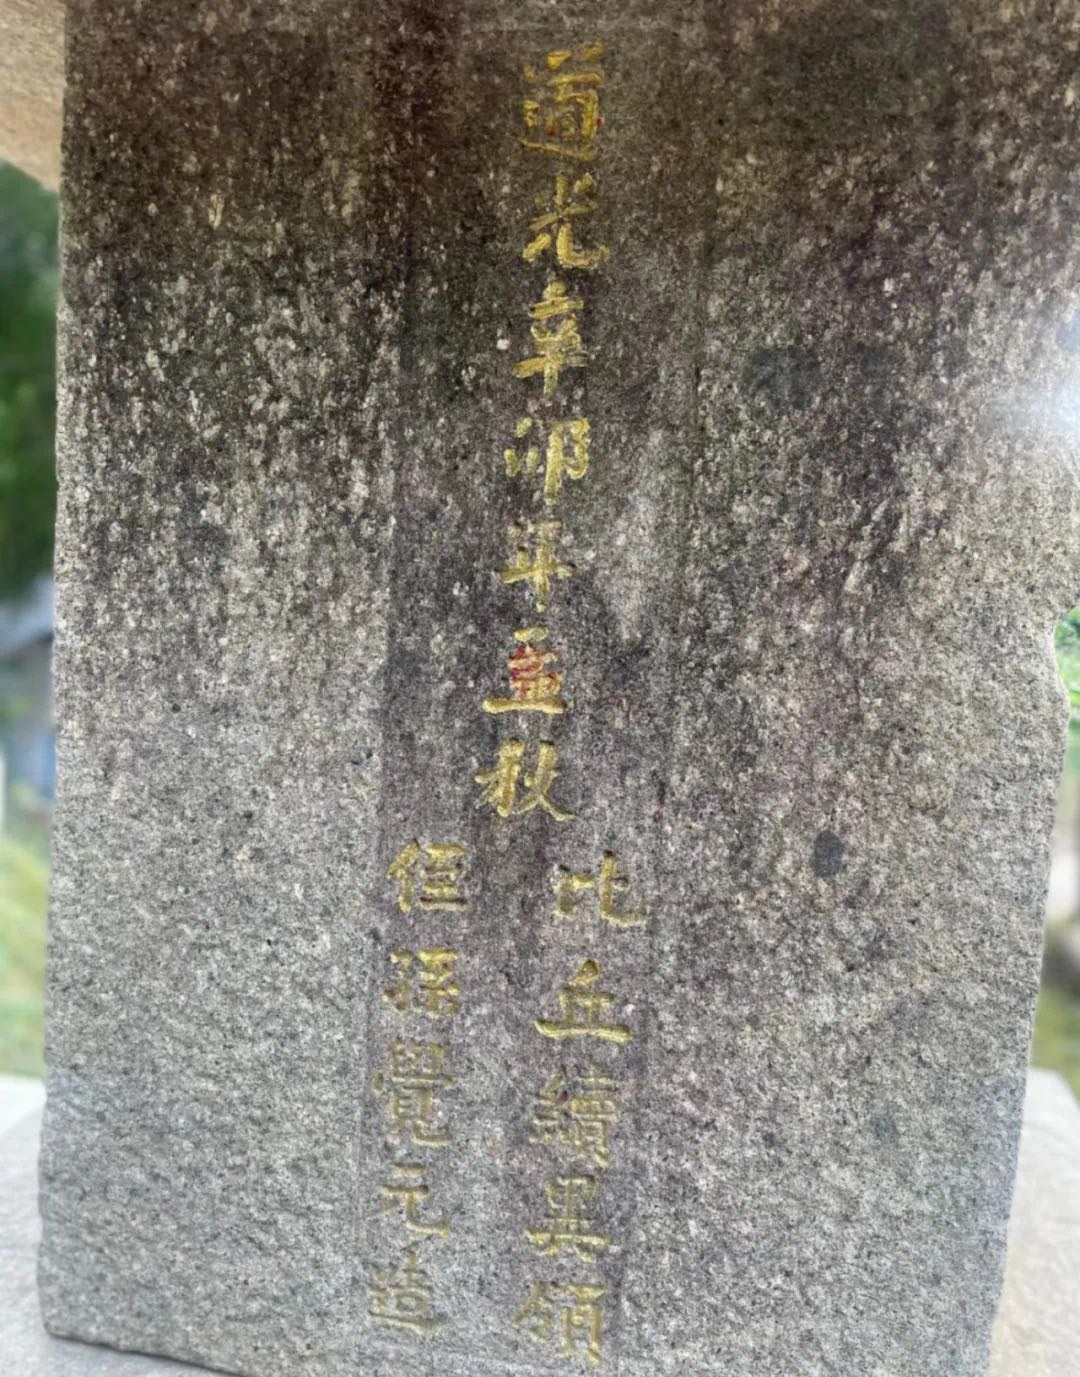 道光辛卯年孟秋
比丘續異領
侄孫覺元造